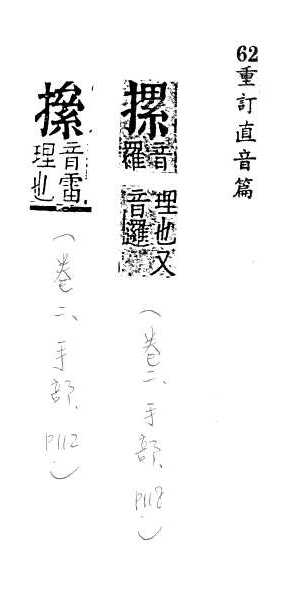 62重訂直音篇
摞
音
羅
理也又
音邏
(卷二、手部、P112)
音雷
理也
(卷二、手部、P112)